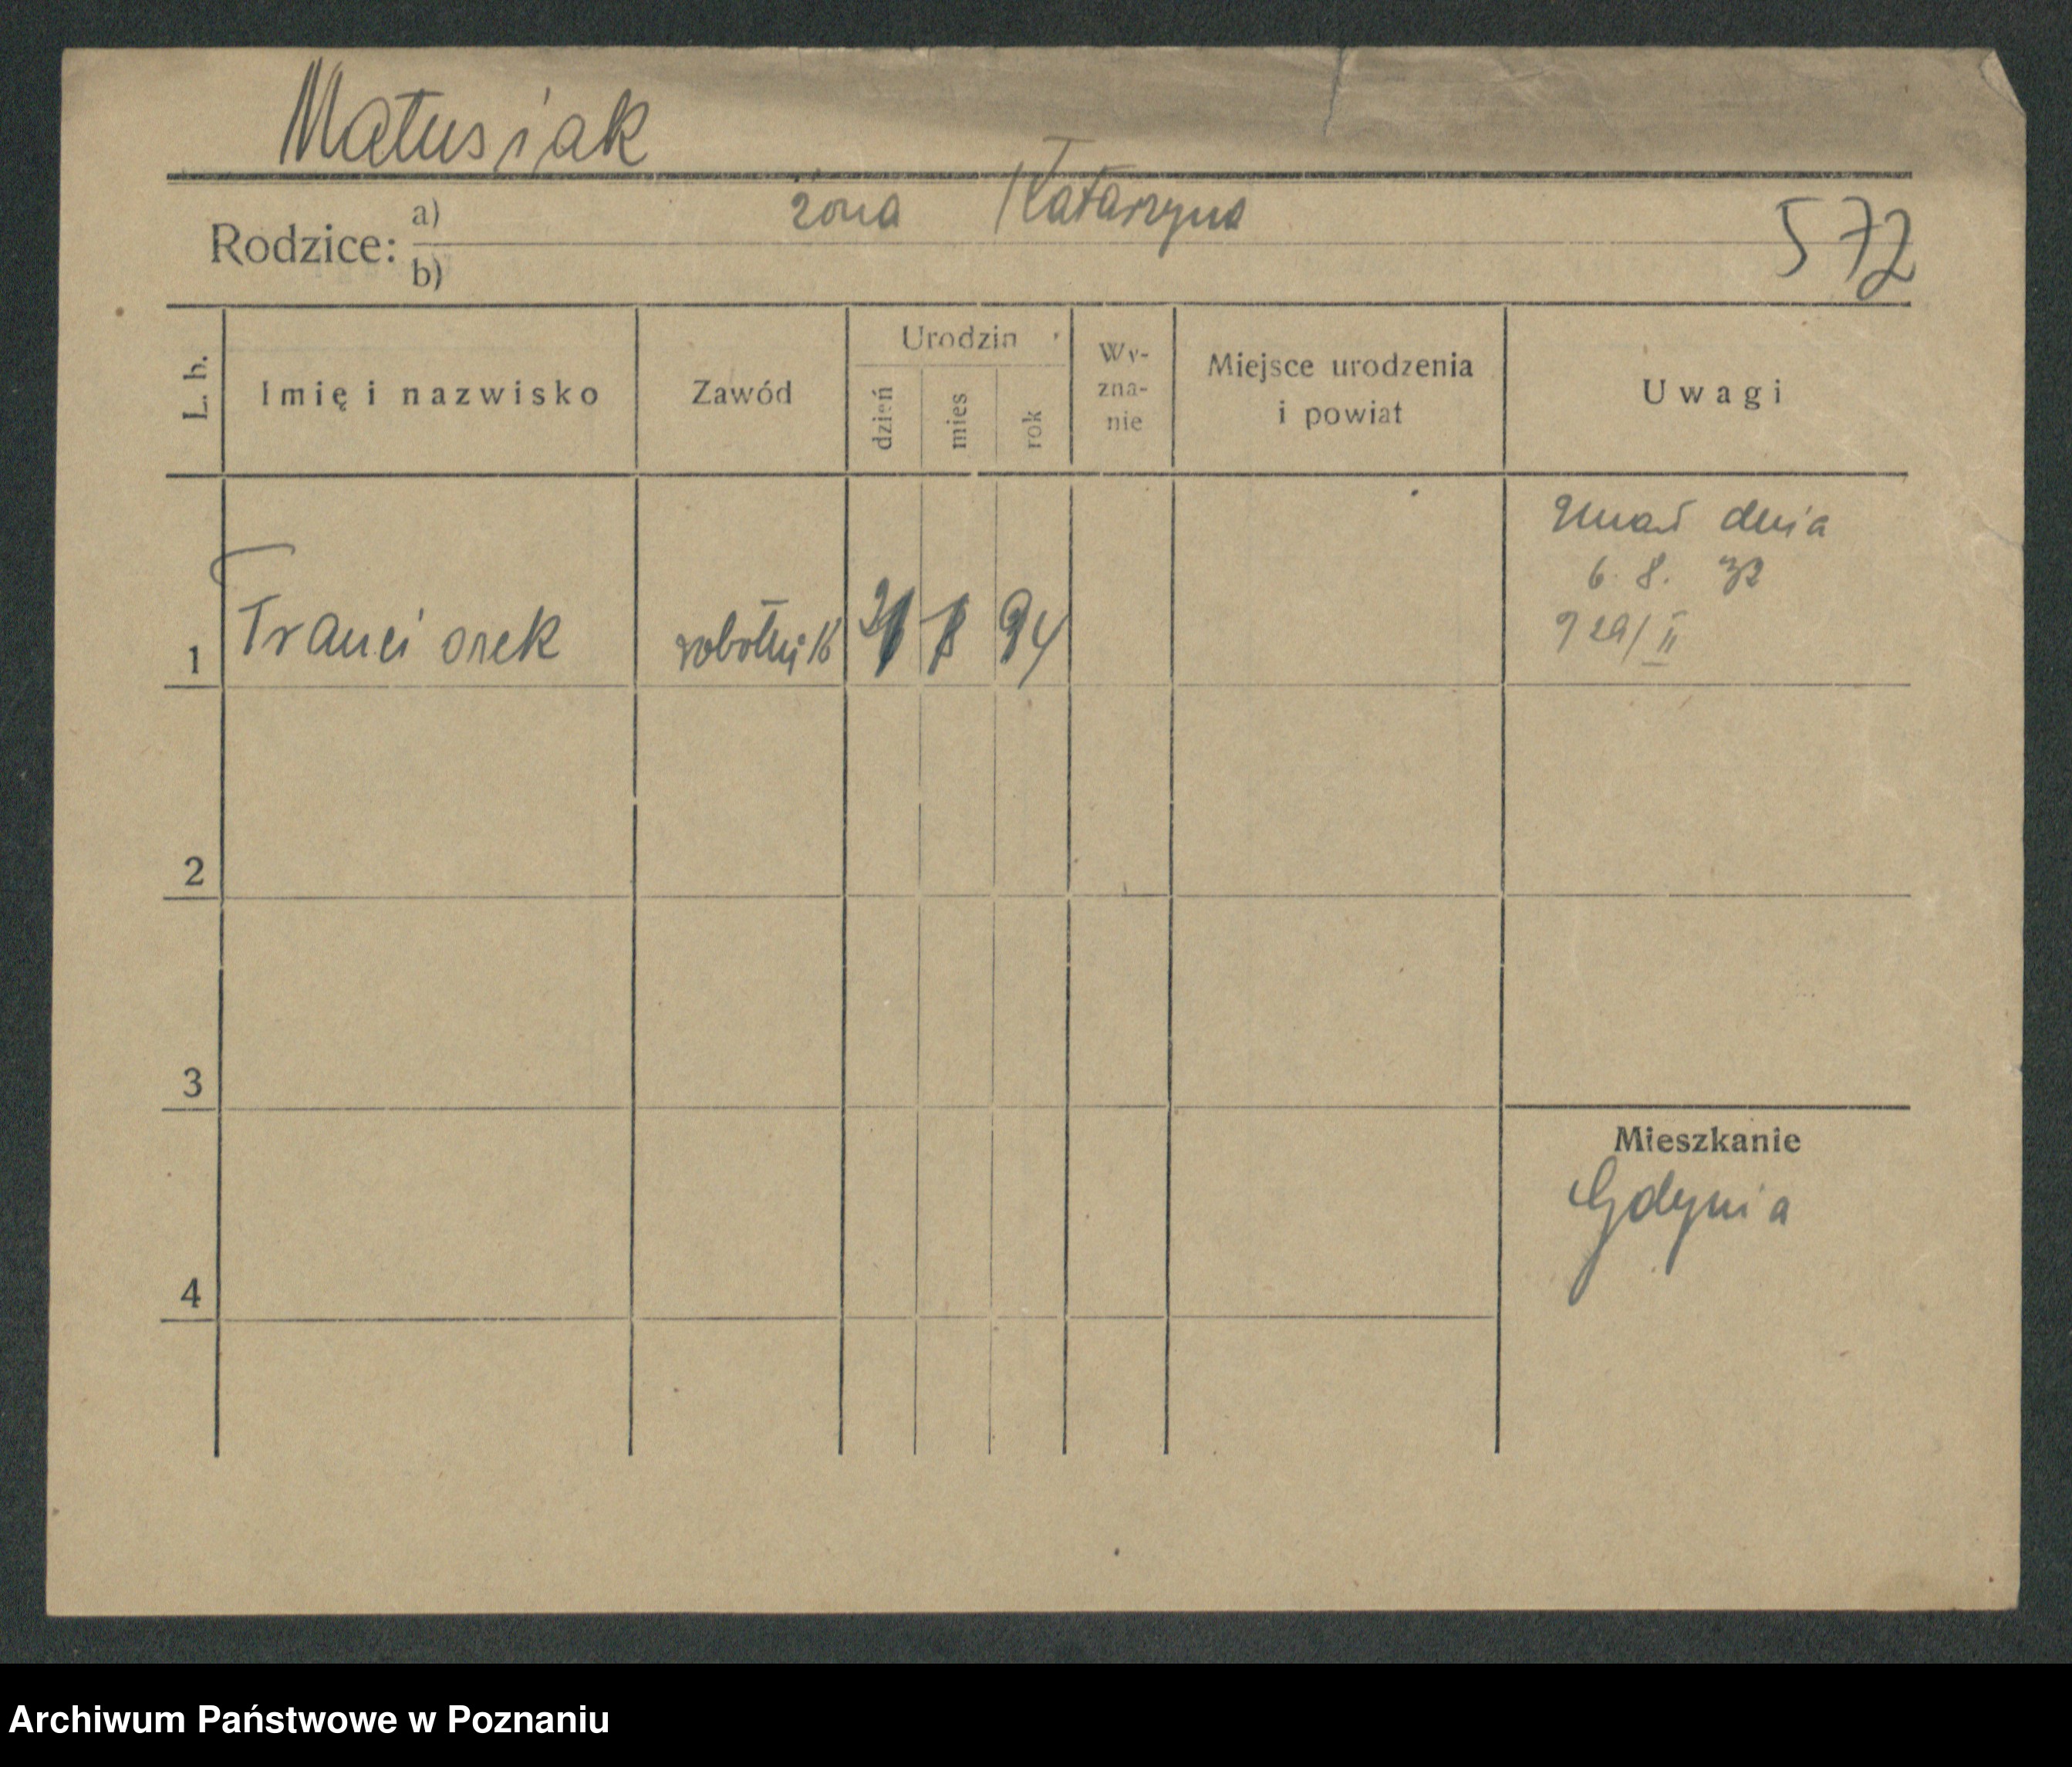 Matusiak
Rodzice: a) żona Katarzyna
b)
572
L. b.
Imię i nazwisko
Zawód
Urodzin
dzień
mies
rok
Wy-
zna-
nie
Miejsce urodzenia
i powiat
Uwagi
1 Franciszek robotnik 8 94
Zmarł dnia
6. 8. 32
929/II
2
3
4
Mieszkanie
Gdynia
Archiwum Państwowe w Poznaniu